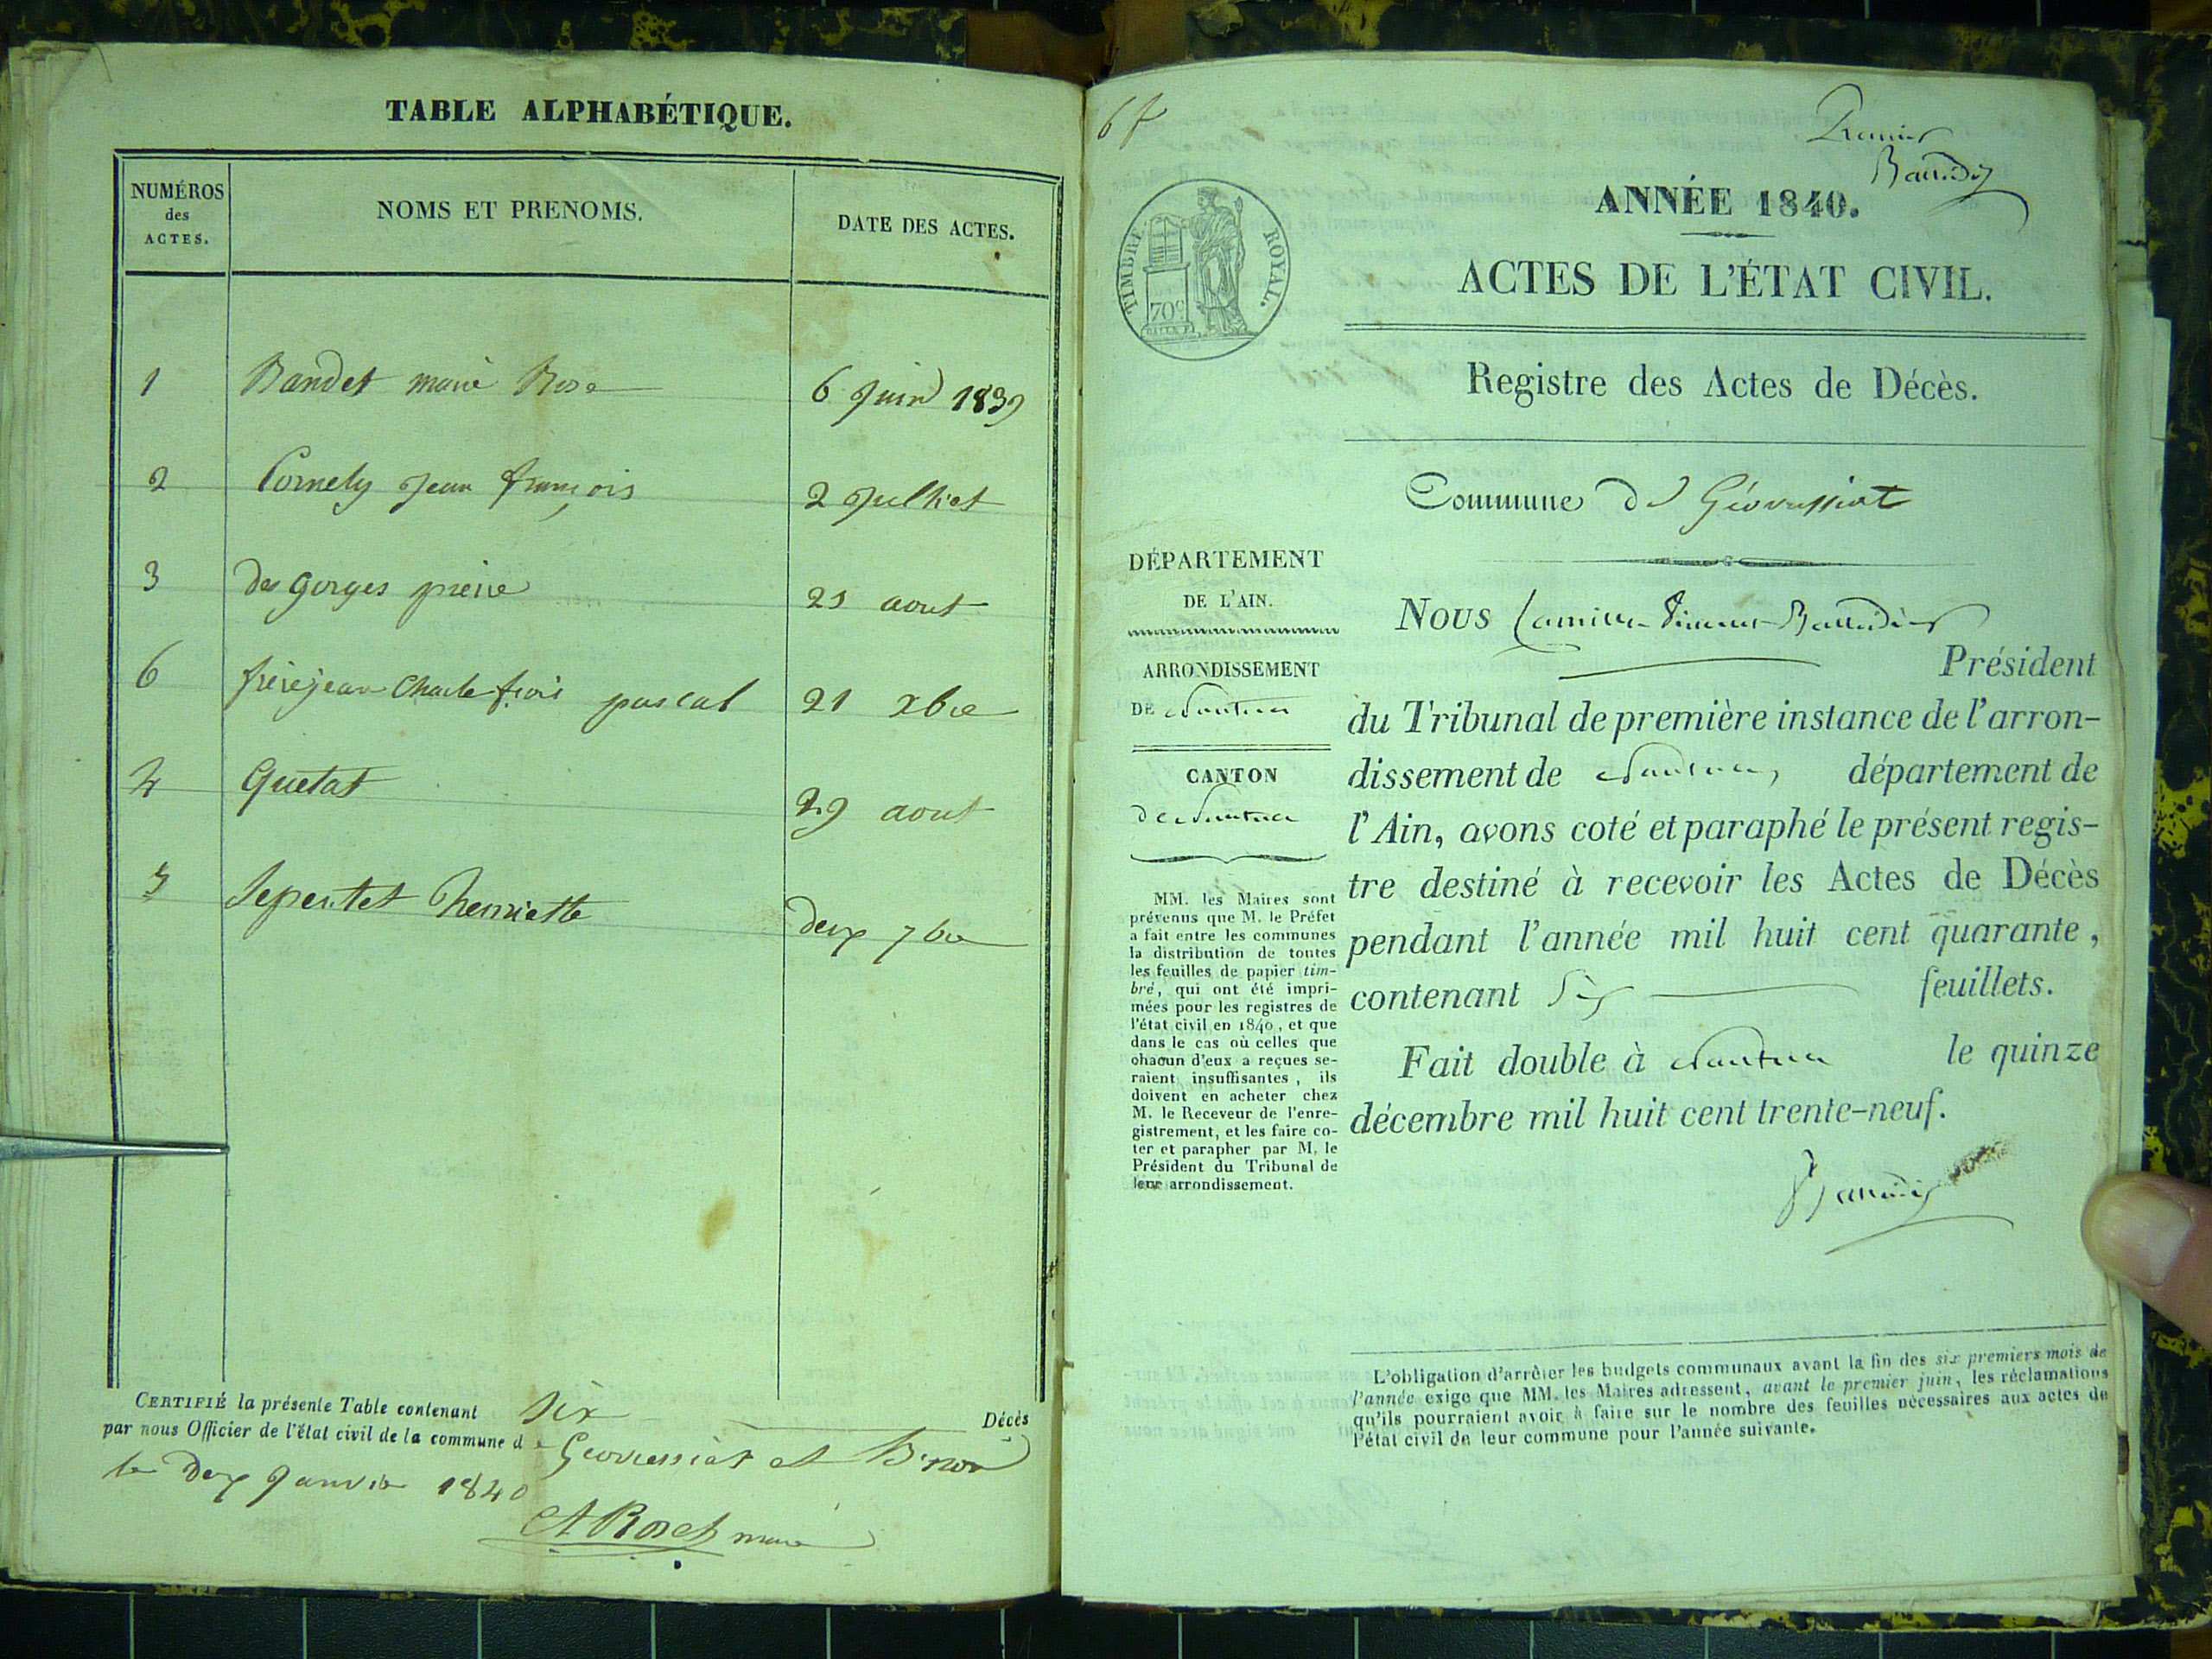 TABLE ALPHABÉTIQUE.
NUMÉROS
des
ACTES.
NOMS ET PRENOMS.
DATE DES ACTES.
1 Bandet marie Rose 6 Juin 1839
2 Cornely Jean françois 2 Julliet
3 des gorges pierre 23 aout
6 frèrejean Charle frois pascal 21 xbre
4 Quetat 29 aout
5 Sepentet henriette deux 7bre
CERTIFIÉ la présente Table contenant six Décès
par nous Officier de l'état civil de la commune de Geovressiat et Brion
le deux Janvier 1840
Roset maire
67
Premier
ANNÉE 1840.
TIMBRE ROYAL.
70c
ACTES DE L'ÉTAT CIVIL.
Registre des Actes de Décès.
Commune de Géovressiat
DÉPARTEMENT
DE L'AIN.
ARRONDISSEMENT
DE Nantua
CANTON
de Nantua
MM. les Maires sont
prévenus que M. le Préfet
a fait entre les communes
la distribution de toutes
les feuilles de papier tim-
bré, qui ont été impri-
mées pour les registres de
l'état civil en 1840, et que
dans le cas où celles que
chacun d'eux a reçues se-
raient insuffisantes, ils
doivent en acheter chez
M. le Receveur de l'enre-
gistrement, et les faire co-
ter et parapher par M. le
Président du Tribunal de
leur arrondissement.
Nous Camille Vincent
Président
du Tribunal de première instance de l'arron-
dissement de Nantua, département de
l'Ain, avons coté et paraphé le présent regis-
tre destiné à recevoir les Actes de Décès
pendant l'année mil huit cent quarante,
contenant Six feuillets.
Fait double à Nantua le quinze
décembre mil huit cent trente-neuf.
L'obligation d'arrêter les budgets communaux avant la fin des six premiers mois de
l'année exige que MM. les Maires adressent, avant le premier juin, les réclamations
qu'ils pourraient avoir à faire sur le nombre des feuilles nécessaires aux actes de
l'état civil de leur commune pour l'année suivante.